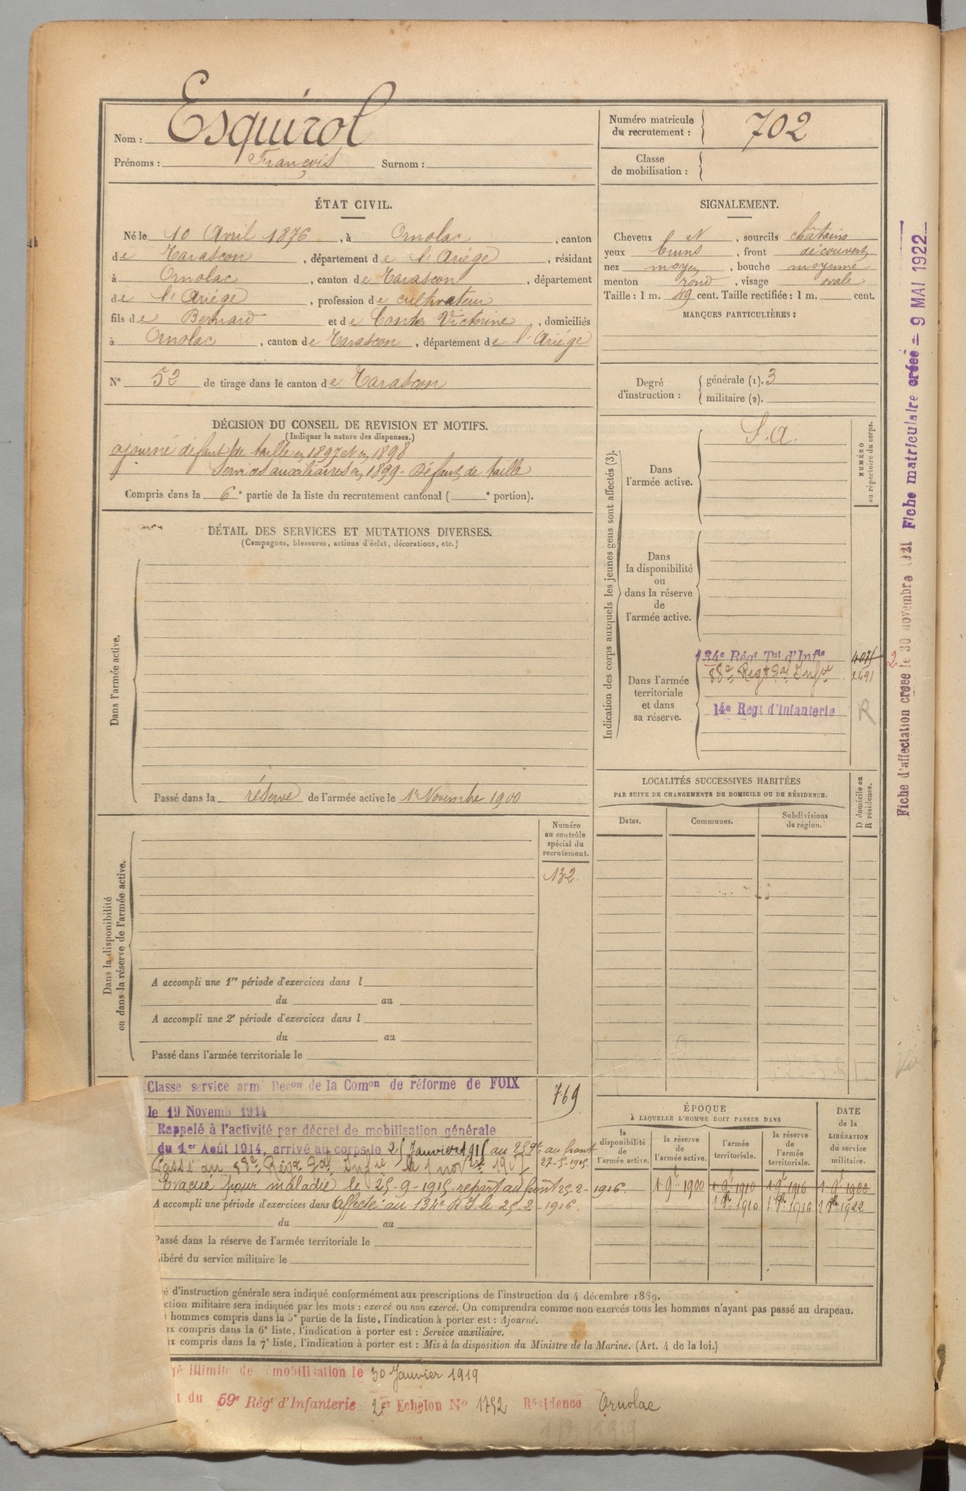 Nom : Esquirol
Prénoms : François Surnom :
Numéro matricule du recrutement : 702
Classe de mobilisation :
ÉTAT CIVIL.
Né le 10 Avril 1876, à Ornolac, canton
de Tarascon, département de l'Ariège, résidant
à Ornolac, canton de Tarascon, département
de l'Ariège, profession de cultivateur
fils de Bernard et de Conte Victorine, domiciliés
à Ornolac, canton de Tarascon, département de l'Ariège
N° 52 de tirage dans le canton de Tarascon
SIGNALEMENT.
Cheveux et, sourcils chatains
yeux bruns, front découvert
nez moyen, bouche moyenne
menton rond, visage ovale
Taille : 1 m. 49 cent. Taille rectifiée : 1 m. cent.
MARQUES PARTICULIÈRES :
Degré d'instruction :
générale (1). 3
militaire (2).
DÉCISION DU CONSEIL DE REVISION ET MOTIFS.
(Indiquer la nature des dispenses.)
ajourné défaut de taille en 1897 et en 1898
Services auxiliaires en 1899 - Défaut de taille
Compris dans la 6e partie de la liste du recrutement cantonal ( e portion).
DÉTAIL DES SERVICES ET MUTATIONS DIVERSES.
(Campagnes, blessures, actions d'éclat, décorations, etc.)
Dans l'armée active.
Passé dans la réserve de l'armée active le 1er Novembre 1900
Indication des corps auxquels les jeunes gens sont affectés (3).
NUMÉRO au répertoire du corps.
Dans l'armée active.
S.A.
Dans la disponibilité ou dans la réserve de l'armée active.
Dans l'armée territoriale et dans sa réserve.
134e Régt Tal d'Infie
88e Régt Tal Infie
14e Régt d'Infanterie
R
LOCALITÉS SUCCESSIVES HABITÉES
PAR SUITE DE CHANGEMENTS DE DOMICILE OU DE RÉSIDENCE.
Dates. Communes. Subdivisions de région.
D domicile ou R résidence.
Fiche d'affectation créée le 30 novembre 1921 Fiche matriculaire créée = 9 MAI 1922
Dans la disponibilité ou dans la réserve de l'armée active.
Numéro au contrôle spécial du recrutement.
132
A accompli une 1re période d'exercices dans l
du au
A accompli une 2e période d'exercices dans l
du au
Passé dans l'armée territoriale le
Classé service armé Déon de la Comon de réforme de FOIX
le 19 Novemb 1914
769
Rappelé à l'activité par décret de mobilisation générale
du 1er Août 1914, arrivé au corps le 25 Janvier 1915 au front 22-5-1915
Passé au 88e Régt Tal Infie le 1 novbre 1915
Evacué pour maladie le 25-9-1915 repart au front 25-2-1916
A accompli une période d'exercices dans Affecté au 134e R.I. le 25-2-1916.
du au
Passé dans la réserve de l'armée territoriale le
ibéré du service militaire le
ÉPOQUE
À LAQUELLE L'HOMME DOIT PASSER DANS
la disponibilité de l'armée active.
la réserve de l'armée active.
l'armée territoriale.
la réserve de l'armée territoriale.
DATE de la LIBÉRATION du service militaire.
1 9e 1900 1 9e 1910 1 9e 1916 1 9e 1922
1 8bre 1910 1 8bre 1916 1 8bre 1922
é d'instruction générale sera indiqué conformément aux prescriptions de l'instruction du 4 décembre 1889.
ction militaire sera indiquée par les mots : exercé ou non exercé. On comprendra comme non exercés tous les hommes n'ayant pas passé au drapeau.
hommes compris dans la 5e partie de la liste, l'indication à porter est : Ajourné.
ux compris dans la 6e liste, l'indication à porter est : Service auxiliaire.
ux compris dans la 7e liste, l'indication à porter est : Mis à la disposition du Ministre de la Marine. (Art. 4 de la loi.)
gé illimité de démobilisation le 30 Janvier 1919
t du 59e Régt d'Infanterie 2er Echelon N° 1752 Résidence Ornolac